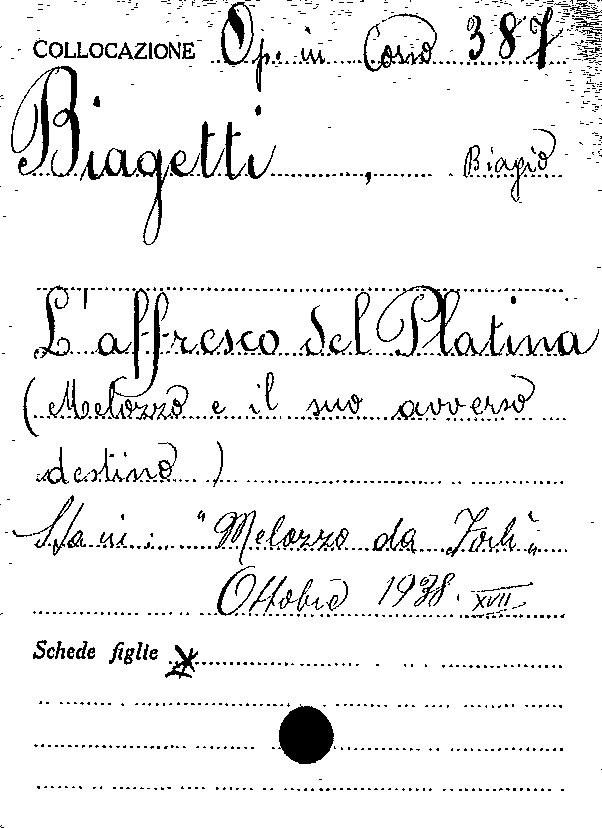 COLLOCAZIONE Op. in Corso 387
Biagetti, Biagio
L'affresco del Platina
(Melozzo e il suo avverso
destino)
Sta in: "Melozzo da Forlì"
Ottobre 1938. XVII
Schede figlie